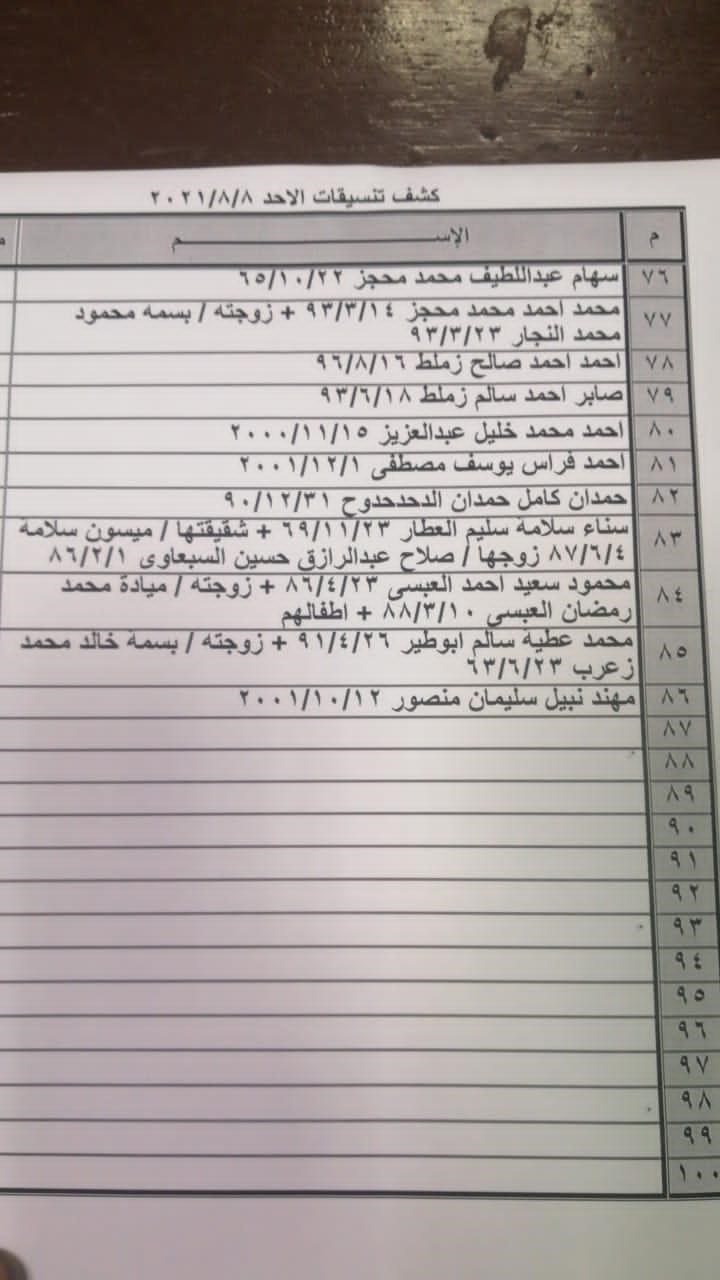 كشف تنسيقات الاحد ٢٠٢١/٨/٨
م الإســـــــــــم م
٧٦ سهام عبداللطيف محمد محجز ٦٥/١٠/٢٢
٧٧ محمد احمد محمد محجز ٩٣/٣/١٤ + زوجته / بسمه محمود
محمد النجار ٩٣/٣/٢٣
٧٨ احمد احمد صالح زملط ٩٦/٨/١٦
٧٩ صابر احمد سالم زملط ٩٣/٦/١٨
٨٠ احمد محمد خليل عبدالعزيز ٢٠٠٠/١١/١٥
٨١ احمد فراس يوسف مصطفى ٢٠٠١/١٢/١
٨٢ حمدان كامل حمدان الدحدحدوح ٩٠/١٢/٣١
٨٣ سناء سلامة سليم العطار ٦٩/١١/٢٣ + شقيقتها / ميسون سلامة
٨٧/٦/٤ زوجها / صلاح عبدالرازق حسين السبعاوى ٨٦/٢/١
٨٤ محمود سعيد احمد العبسى ٨٦/٤/٢٣ + زوجته / ميادة محمد
رمضان العبسي ٨٨/٣/١٠ + اطفالهم
٨٥ محمد عطية سالم ابوطير ٩١/٤/٢٦ + زوجته / بسمة خالد محمد
زعرب ٦٣/٦/٢٣
٨٦ مهند نبيل سليمان منصور ٢٠٠١/١٠/١٢
٨٧
٨٨
٨٩
٩٠
٩١
٩٢
٩٣
٩٤
٩٥
٩٦
٩٧
٩٨
٩٩
١٠٠